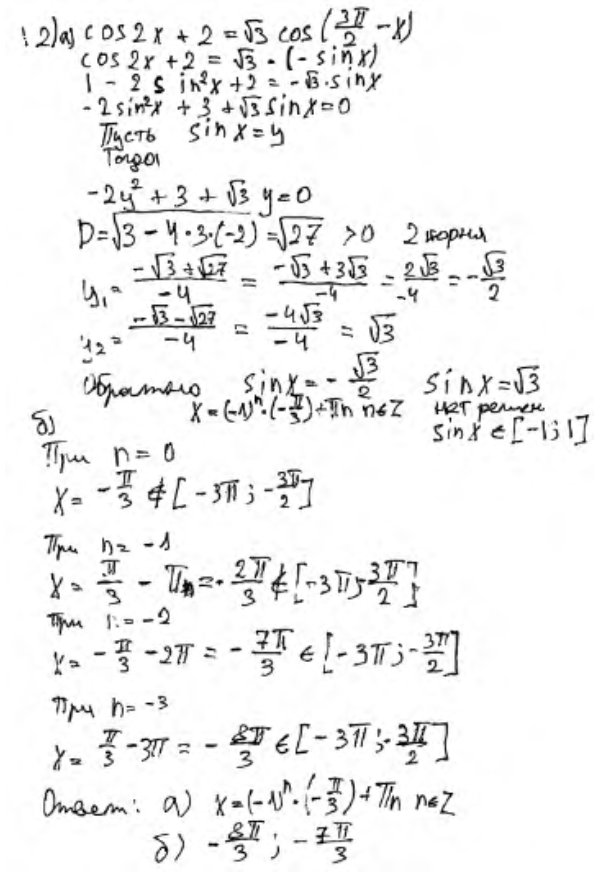 12)а) cos2x + 2 = √3 cos(3π/2 - x)
cos2x + 2 = √3 · (-sinx)
1 - 2 sin²x + 2 = -√3·sinx
-2sin²x + 3 + √3 sinx = 0
Пусть sinx = y
Тогда
-2y² + 3 + √3 y = 0
D = √(3 - 4·3·(-2)) = √27 > 0 2 корня
y₁ = (-√3 + √27)/(-4) = (-√3 + 3√3)/(-4) = 2√3/(-4) = -√3/2
y₂ = (-√3 - √27)/(-4) = (-4√3)/(-4) = √3
Обратно sinx = -√3/2 sinx = √3
x = (-1)ⁿ·(-π/3) + πn n∈Z нет решен
sinx ∈ [-1; 1]
б)
При n = 0
x = -π/3 ∉ [-3π; -3π/2]
При n = -1
x = π/3 - π = -2π/3 ∉ [-3π; -3π/2]
При n = -2
x = -π/3 - 2π = -7π/3 ∈ [-3π; -3π/2]
При n = -3
x = π/3 - 3π = -8π/3 ∈ [-3π; -3π/2]
Ответ: а) x = (-1)ⁿ·(-π/3) + πn n∈Z
б) -8π/3; -7π/3